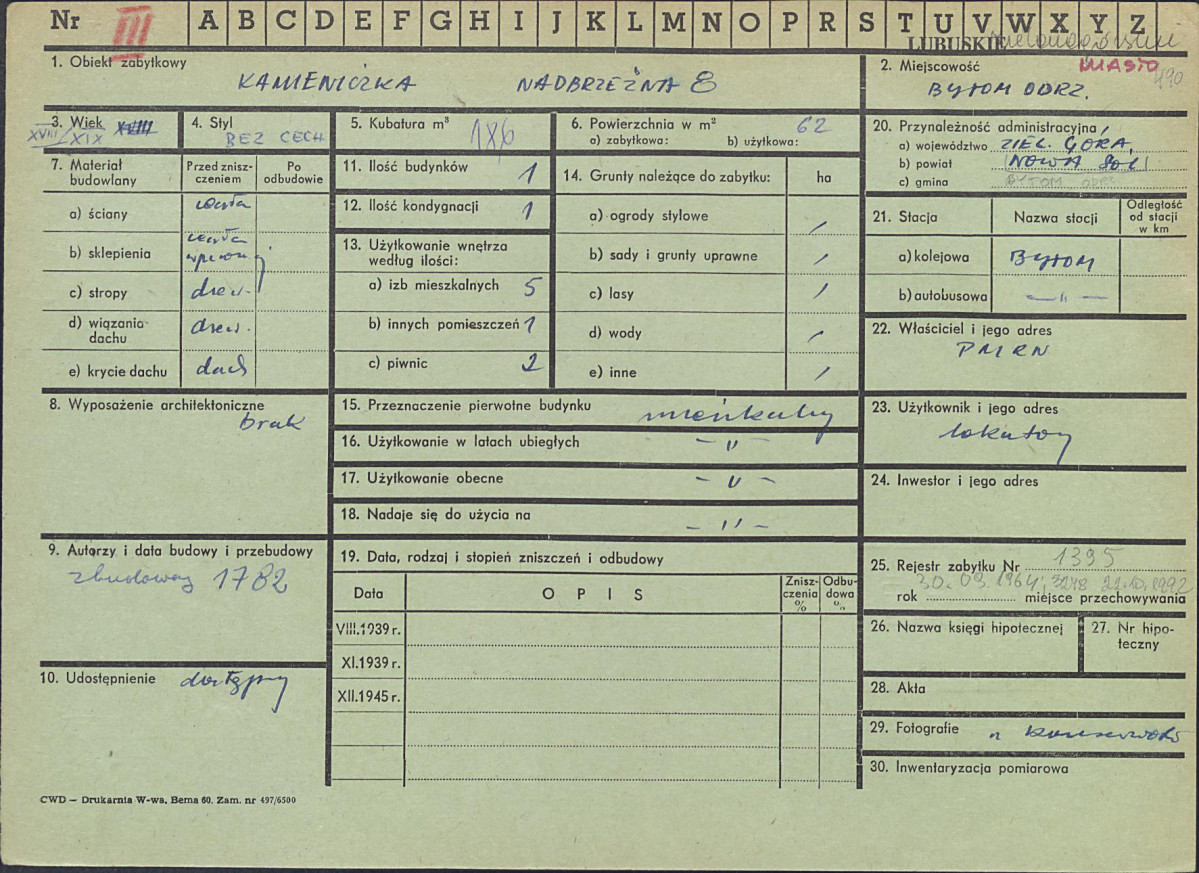 Nr III A B C D E F G H I J K L M N O P R S T U V W X Y Z
LUBUSKIE
1. Obiekt zabytkowy
KAMIENICZKA NADBRZEŻNA 8
2. Miejscowość MIASTO
BYTOM ODRZ. 490
3. Wiek XVIII
XVIII/XIX
4. Styl
BEZ CECH
5. Kubatura m³ 186
6. Powierzchnia w m² 62
a) zabytkowa: b) użytkowa:
20. Przynależność administracyjna
a) województwo ZIEL. GÓRA,
b) powiat (NOWA SÓL)
c) gmina BYTOM ODRZ.
7. Materiał budowlany
Przed znisz-
czeniem
Po
odbudowie
a) ściany cegła
b) sklepienia cegła
c) stropy drew.
d) wiązania
dachu drew.
e) krycie dachu dach
11. Ilość budynków 1
12. Ilość kondygnacji 1
13. Użytkowanie wnętrza
według ilości:
a) izb mieszkalnych 5
b) innych pomieszczeń 1
c) piwnic 2
14. Grunty należące do zabytku: ha
a) ogrody stylowe /
b) sady i grunty uprawne /
c) lasy /
d) wody /
e) inne /
21. Stacja Nazwa stacji
Odległość
od stacji
w km
a) kolejowa BYTOM
b) autobusowa — " —
22. Właściciel i jego adres
PMRN
8. Wyposażenie architektoniczne
brak
15. Przeznaczenie pierwotne budynku mieszkalny
16. Użytkowanie w latach ubiegłych – " –
17. Użytkowanie obecne – " –
18. Nadaje się do użycia na – " –
23. Użytkownik i jego adres
lokatorzy
24. Inwestor i jego adres
9. Autorzy i data budowy i przebudowy
zbudowany 1782
19. Data, rodzaj i stopień zniszczeń i odbudowy
Data OPIS
Znisz-
czenia
%
Odbu-
dowa
%
VIII.1939 r.
XI.1939 r.
XII.1945 r.
25. Rejestr zabytku Nr 1395
30.03.1964; 3248 22.10.1992
rok miejsce przechowywania
26. Nazwa księgi hipotecznej
27. Nr hipo-
teczny
10. Udostępnienie dostępny
28. Akta
29. Fotografie
30. Inwentaryzacja pomiarowa
CWD — Drukarnia W-wa, Bema 60. Zam. nr 497/6500